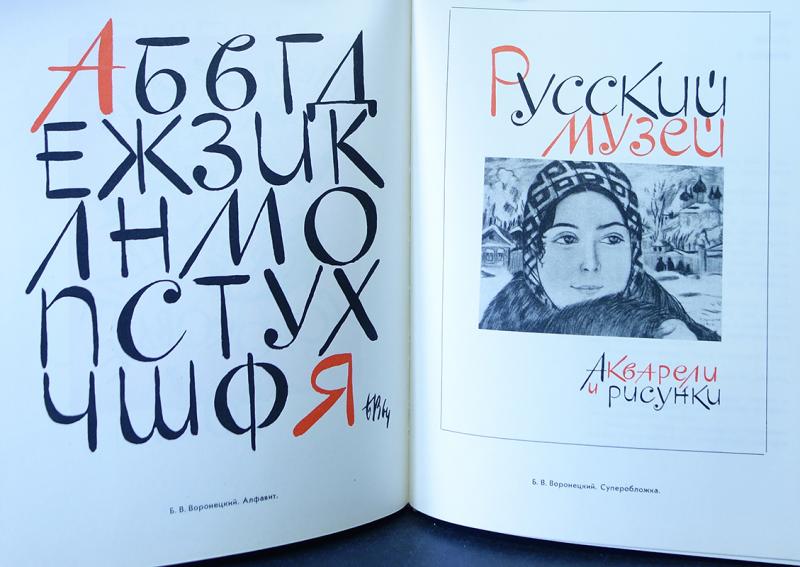 АБВГД
ЕЖЗИК
ЛНМО
ПСТУХ
ЧШФЯ
Б. В. Воронецкий. Алфавит.
Русский
музей
Акварели
и рисунки
Б. В. Воронецкий. Суперобложка.